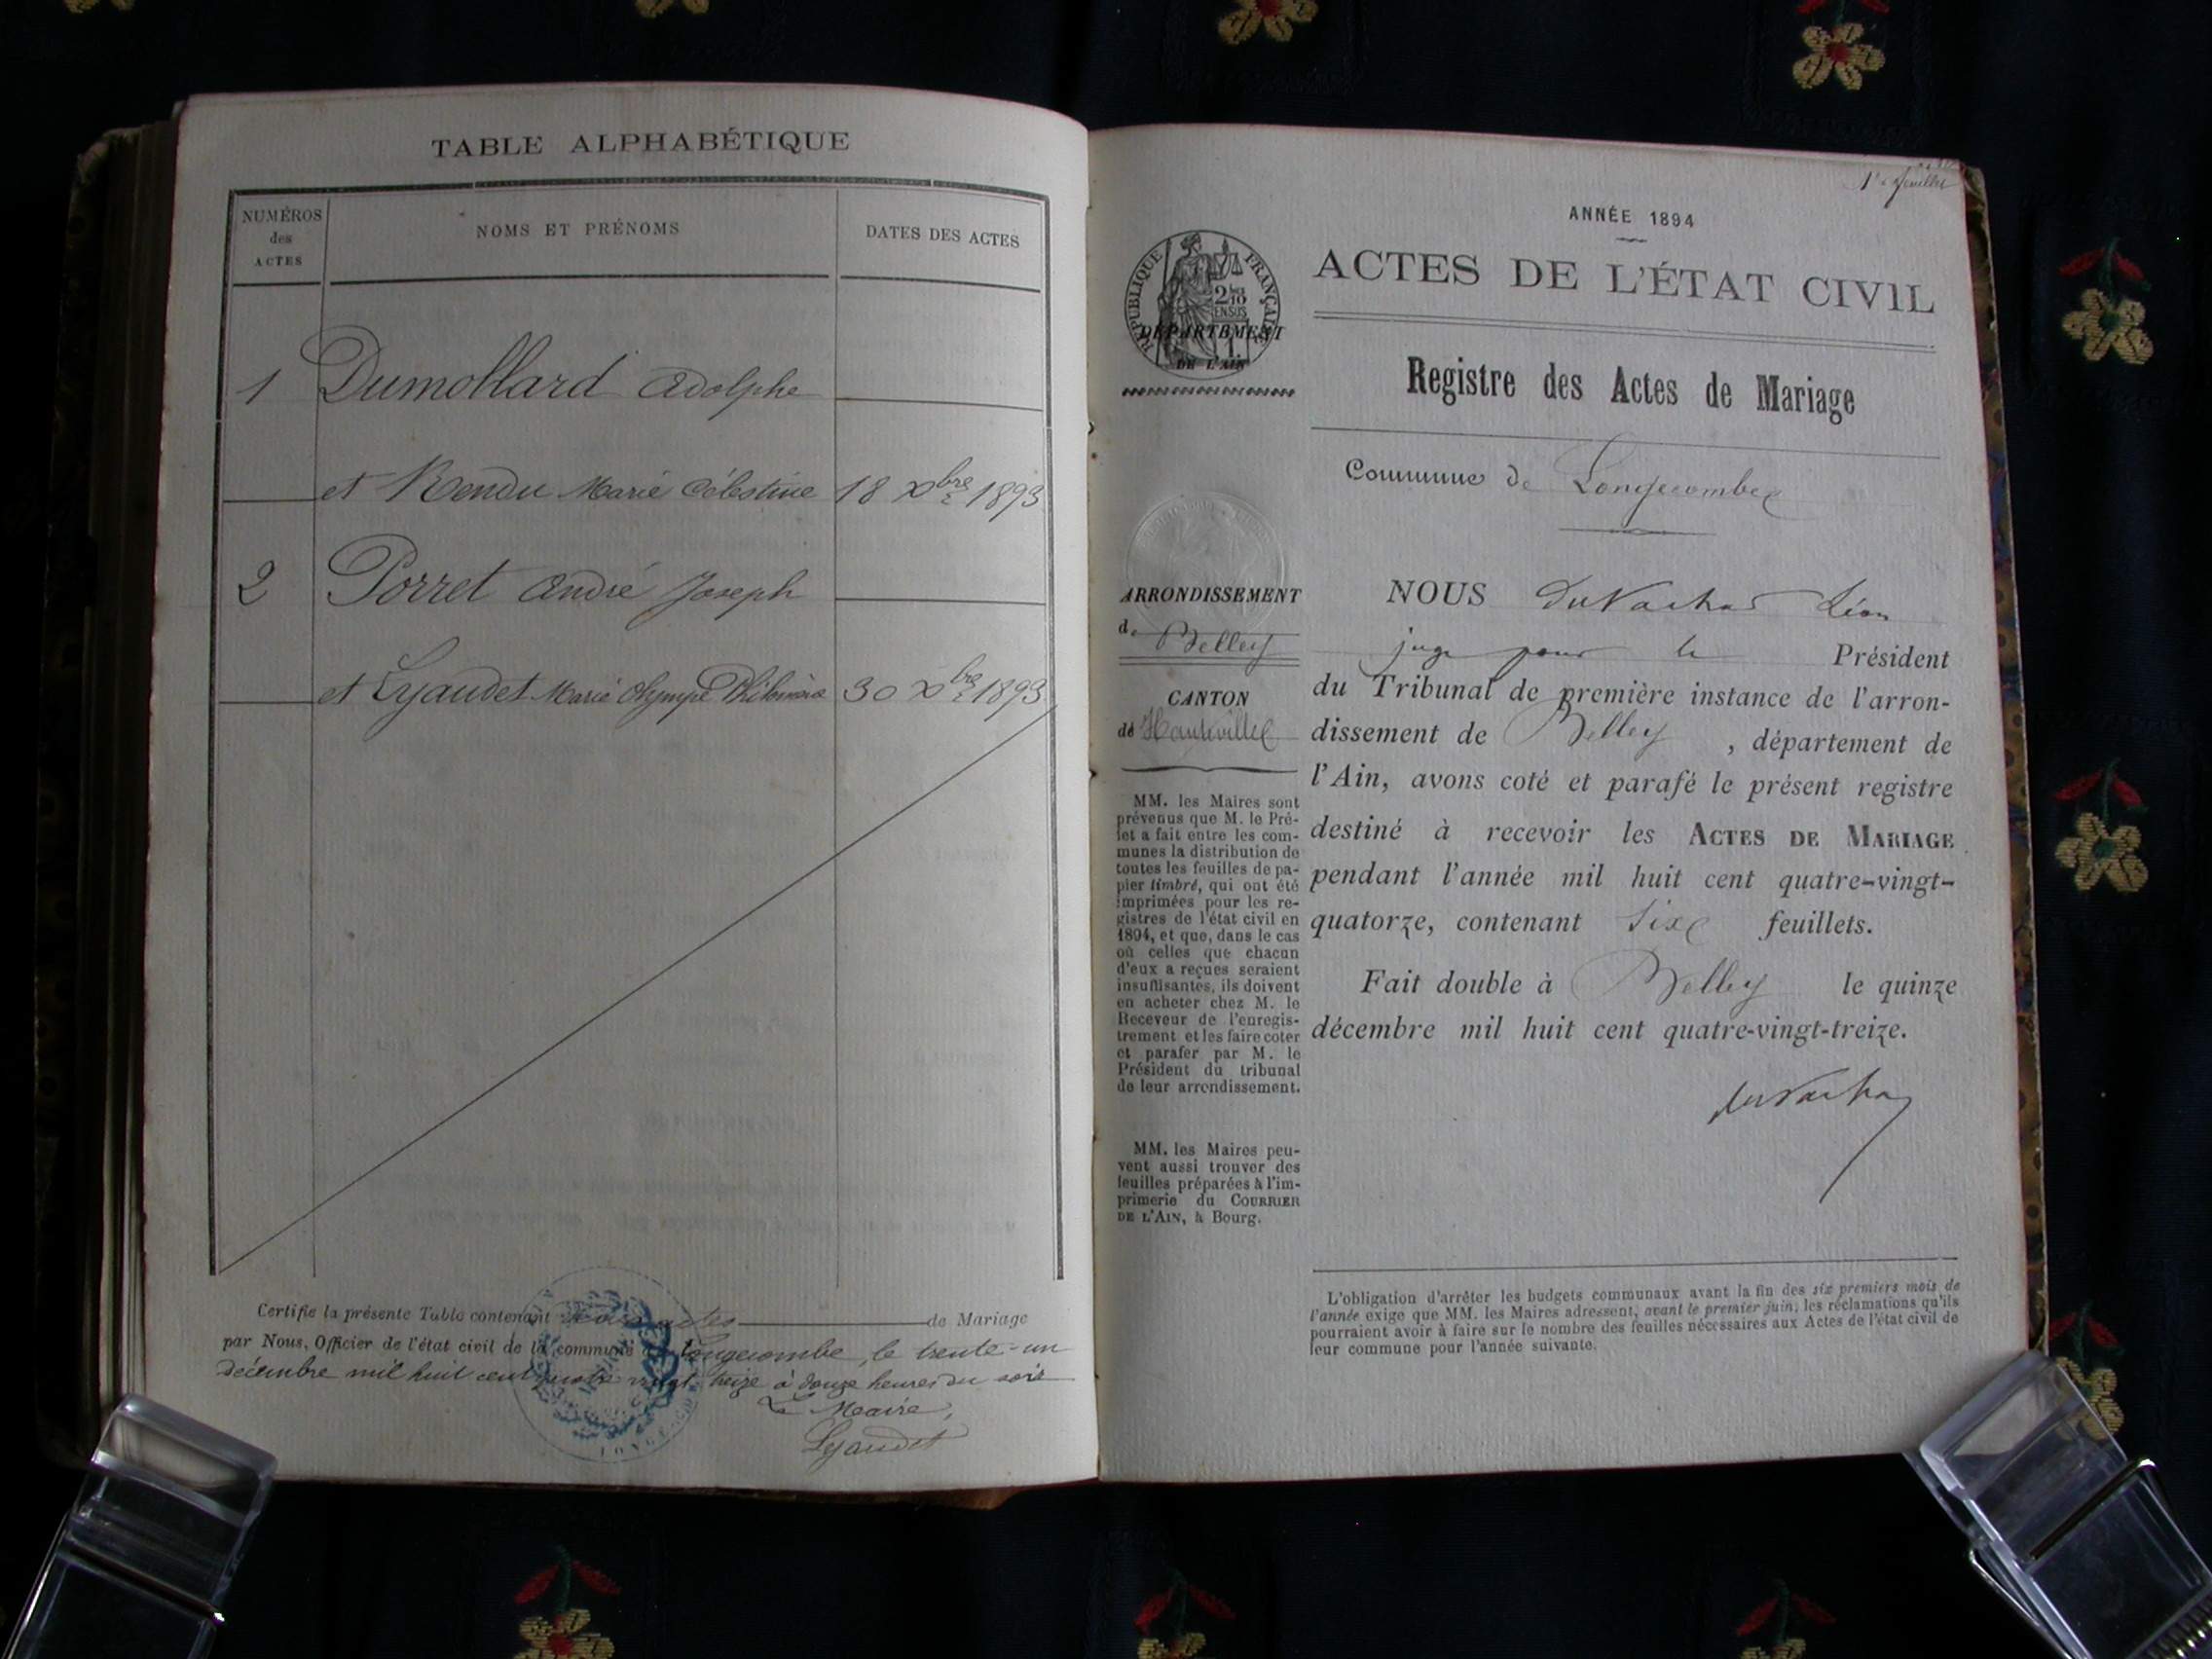 TABLE ALPHABÉTIQUE
NUMÉROS
des
ACTES
NOMS ET PRÉNOMS
DATES DES ACTES
1 Dumollard Adolphe
et Rendu Marie Célestine 18 Xbre 1893
2 Porret André Joseph
et Lyaudet Marie Olympe Philomène 30 Xbre 1893
Certifie la présente Table contenant actes de Mariage
par Nous, Officier de l'état civil de la commune de Longecombe, le trente-un
décembre mil huit cent quatre vingt treize à douze heures du soir
Le Maire,
Lyaudet
1er feuillet
ANNÉE 1894
ACTES DE L'ÉTAT CIVIL
RÉPUBLIQUE FRANÇAISE
DÉPARTEMENT
DE L'AIN
Registre des Actes de Mariage
Commune de Longecombe
ARRONDISSEMENT
de Belley
CANTON
de Hauteville
MM. les Maires sont
prévenus que M. le Pré-
fet a fait entre les com-
munes la distribution de
toutes les feuilles de pa-
pier timbré, qui ont été
imprimées pour les re-
gistres de l'état civil en
1894, et que, dans le cas
où celles que chacun
d'eux a reçues seraient
insuffisantes, ils doivent
en acheter chez M. le
Receveur de l'enregis-
trement et les faire coter
et parafer par M. le
Président du tribunal
de leur arrondissement.
MM. les Maires peu-
vent aussi trouver des
feuilles préparées à l'im-
primerie du COURRIER
DE L'AIN, à Bourg.
NOUS Léon
juge pour le Président
du Tribunal de première instance de l'arron-
dissement de Belley, département de
l'Ain, avons coté et parafé le présent registre
destiné à recevoir les ACTES DE MARIAGE
pendant l'année mil huit cent quatre-vingt-
quatorze, contenant six feuillets.
Fait double à Belley le quinze
décembre mil huit cent quatre-vingt-treize.
L'obligation d'arrêter les budgets communaux avant la fin des six premiers mois de
l'année exige que MM. les Maires adressent, avant le premier juin, les réclamations qu'ils
pourraient avoir à faire sur le nombre des feuilles nécessaires aux Actes de l'état civil de
leur commune pour l'année suivante.